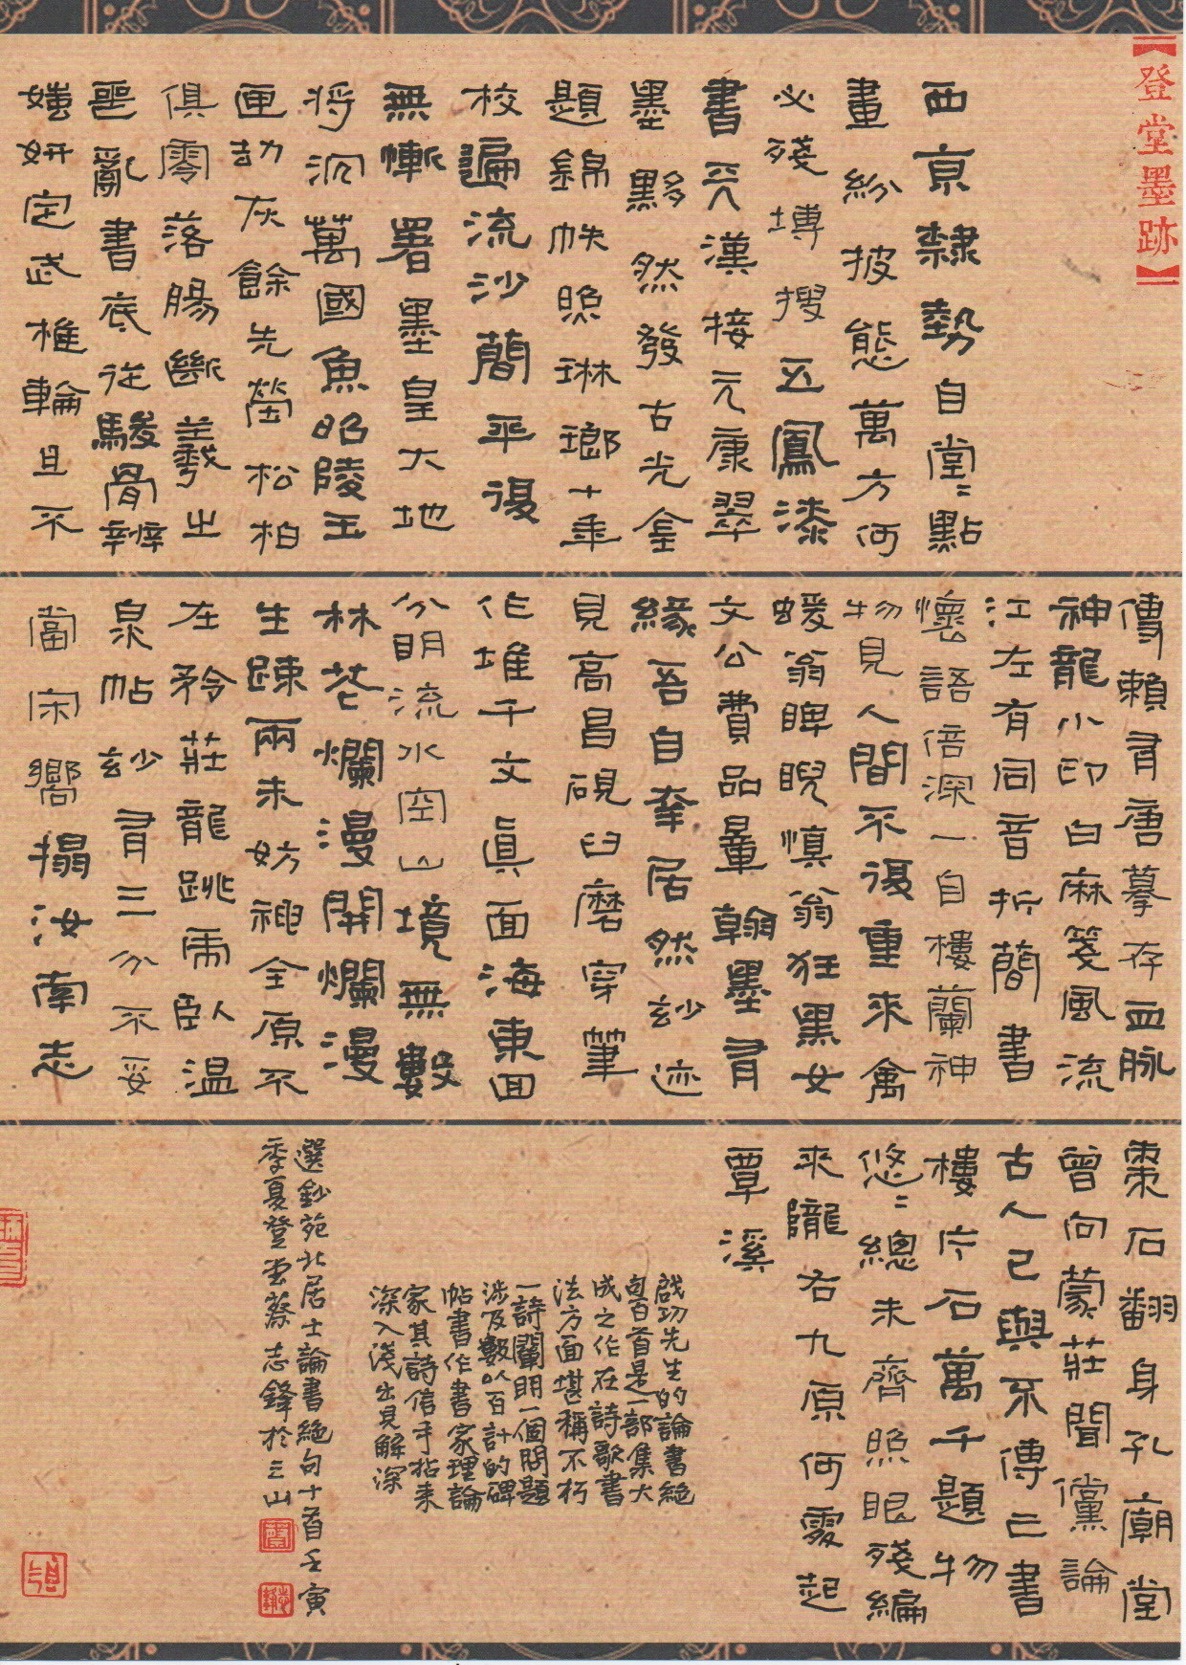 【登堂墨跡】
西京隸勢自堂〻點
畫紛披態萬方何
必殘塼搜五鳳漆
書天漢接元康翠
墨黟然發古光金
題錦帙照琳瑯十年
校遍流沙簡平復
無慚署墨皇大地
將沉萬國魚昭陵玉
匣劫灰餘先塋松柏
俱零落腸斷羲之
喪亂書底從駿骨辨
媸妍定武椎輪且不
傳賴有唐摹存血脉
神龍小印白麻箋風流
江左有同音折簡書
懷語倍深一自樓蘭神
物見人間不復重來禽
蝯翁睥睨慎翁狂黑女
文公費品量翰墨有
緣吾自幸居然妙迹
見高昌硯臼磨穿筆
作堆千文真面海東回
分明流水空山境無數
林花爛漫開爛漫
生疎兩未妨神全原不
在矜莊龍跳虎臥溫
泉帖妙有三分不妥
當宋嚮搨汝南志
棗石翻身孔廟堂
曾向蒙莊聞儻論
古人已與不傳亡書
樓片石萬千題物
悠〻總未齊照眼殘編
來隴右九原何處起
覃溪
啟功先生的論書絕
句百首是一部集大
成之作在詩歌書
法方面堪稱不朽
一詩闡明一個問題
涉及數以百計的碑
帖書作書家理論
家其詩信手拈来
深入淺出見解深
選鈔苑北居士論書絕句十首壬寅
季夏登堂蔡志鋒於三山